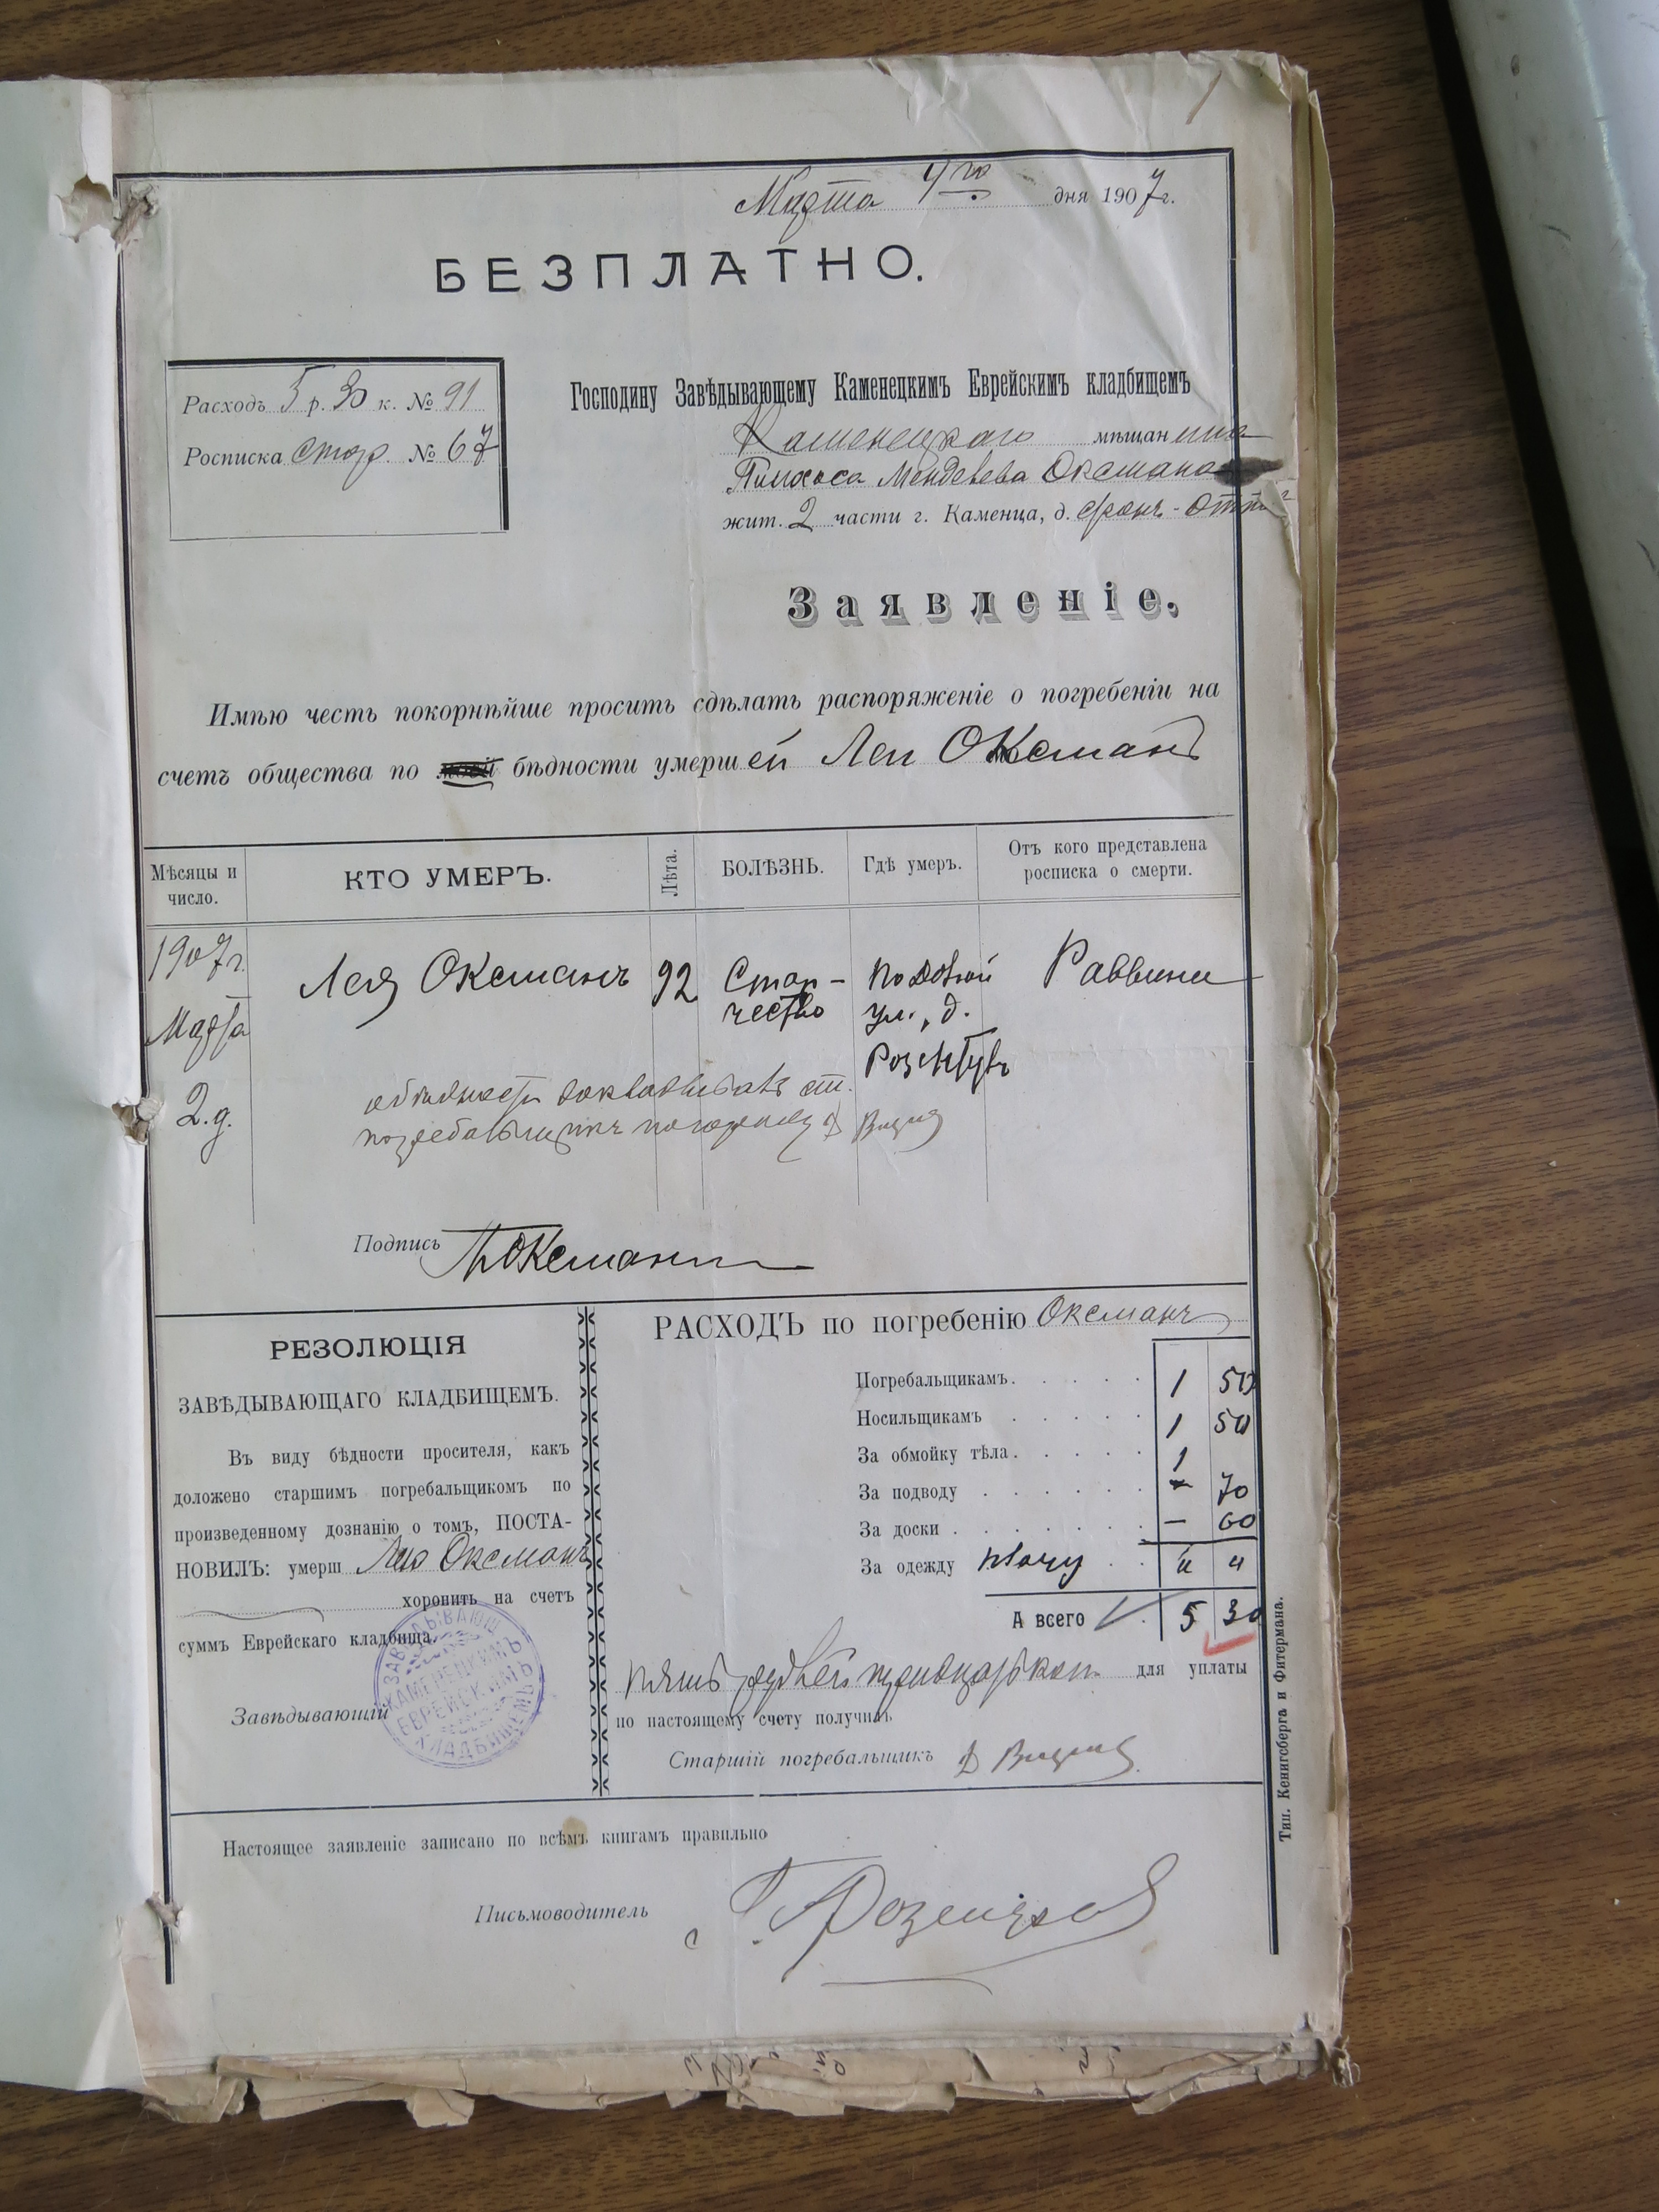 1
Марта 4го дня 1907 г.
БЕЗПЛАТНО.
Расходъ 5 р. 30 к. № 91
Росписка стор. № 67
Господину Завѣдывающему Каменецкимъ Еврейскимъ кладбищемъ
Каменецкаго мѣщанина
Пинхоса Менделева Оксмана
жит. 2 части г. Каменца, д.
Заявленіе.
Имѣю честь покорнѣйше просить сдѣлать распоряженіе о погребеніи на
счетъ общества по бѣдности умершей Леи Оксманъ
Мѣсяцы и число.
КТО УМЕРЪ.
Лѣта.
БОЛѢЗНЬ.
Гдѣ умеръ.
Отъ кого представлена росписка о смерти.
1907 г.
Марта
2 д.
Лея Оксманъ
92
Стар-
чество
ул., д.
Раввина
Подпись П Оксманъ
РЕЗОЛЮЦІЯ
ЗАВѢДЫВАЮЩАГО КЛАДБИЩЕМЪ.
Въ виду бѣдности просителя, какъ
доложено старшимъ погребальщикомъ по
произведенному дознанію о томъ, ПОСТА-
НОВИЛЪ: умерш Лею Оксманъ
хоронить на счетъ
суммъ Еврейскаго кладбища.
Завѣдывающій
ЗАВѢДЫВАЮЩ
КАМЕНЕЦКИМЪ
ЕВРЕЙСКИМЪ
КЛАДБИЩЕМЪ
РАСХОДЪ по погребенію Оксманъ
Погребальщикамъ . . . . . 1 50
Носильщикамъ . . . . . 1 50
За обмойку тѣла . . . . . 1
За подводу . . . . . . – 70
За доски . . . . . . . – 60
За одежду . . " "
А всего . 5 30
пять рублей тридцать коп. для уплаты
по настоящему счету получилъ
Старшій погребальщикъ
Настоящее заявленіе записано по всѣмъ книгамъ правильно
Письмоводитель
Тип. Кенигсберга и Фитермана.